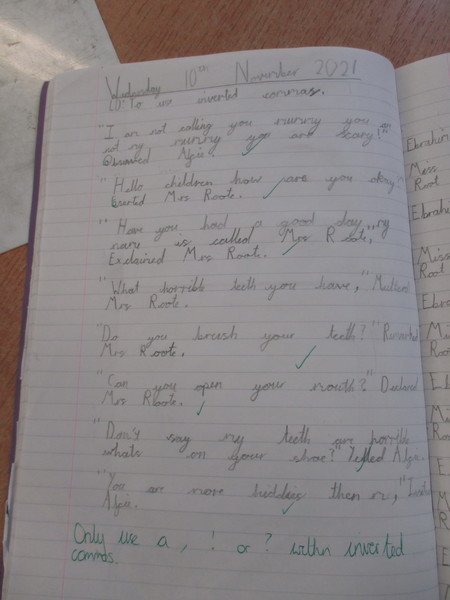 Wednesday 10th November 2021
LO: To use inverted commas.
"I am not calling you mummy you
not my mummy you are scary!"
Observed Algie.
"Hello children how are you okay"
Exerted Mrs Roote.
"Have you had a good day my
name is called Mrs Roote,"
Exclaimed Mrs Roote.
"What horrible teeth you have," Muttered
Mrs Roote.
"Do you brush your teeth?" Remarked
Mrs Roote.
"Can you open your mouth?" Declared
Mrs Roote.
"Don't say my teeth are horrible
whats on your shoe?" Yelled Algie.
"You are more then
Algie.
Only use a , ! or ? within inverted
commas.
Ebrahim
Miss
Root
Ebrah
Miss
Root
Ebra
Mi
Roo
Eb
Mi
Roo
E
M